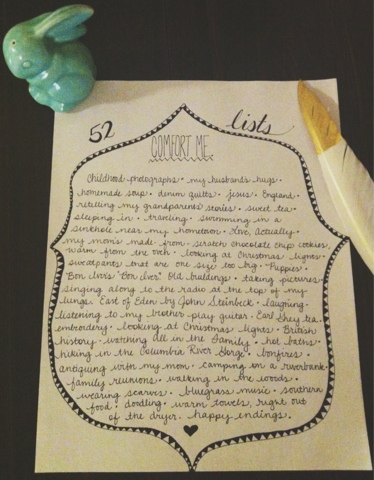 52 lists
COMFORT ME
Childhood photographs • my husbands hugs •
homemade soup • denim quilts • Jesus • England •
retelling my grandparents' stories • sweet tea •
sleeping in • traveling • swimming in a
sinkhole near my hometown • Love, Actually •
my mom's made from scratch chocolate chip cookies,
warm from the oven • looking at Christmas lights •
sweatpants that are one size too big • Puppies •
Bon Iver's "Bon Iver" • Old buildings • taking pictures •
singing along to the radio at the top of my
lungs • East of Eden by John Steinbeck • laughing •
listening to my brother play guitar • Earl Grey tea •
embroidery • looking at Christmas lights • British
history • watching All in the Family • hot baths •
hiking in the Columbia River Gorge • bonfires •
antiquing with my mom • camping on a riverbank •
family reunions • walking in the woods •
wearing scarves • bluegrass music • southern
food • doodling • warm towels, right out
of the dryer • happy endings.